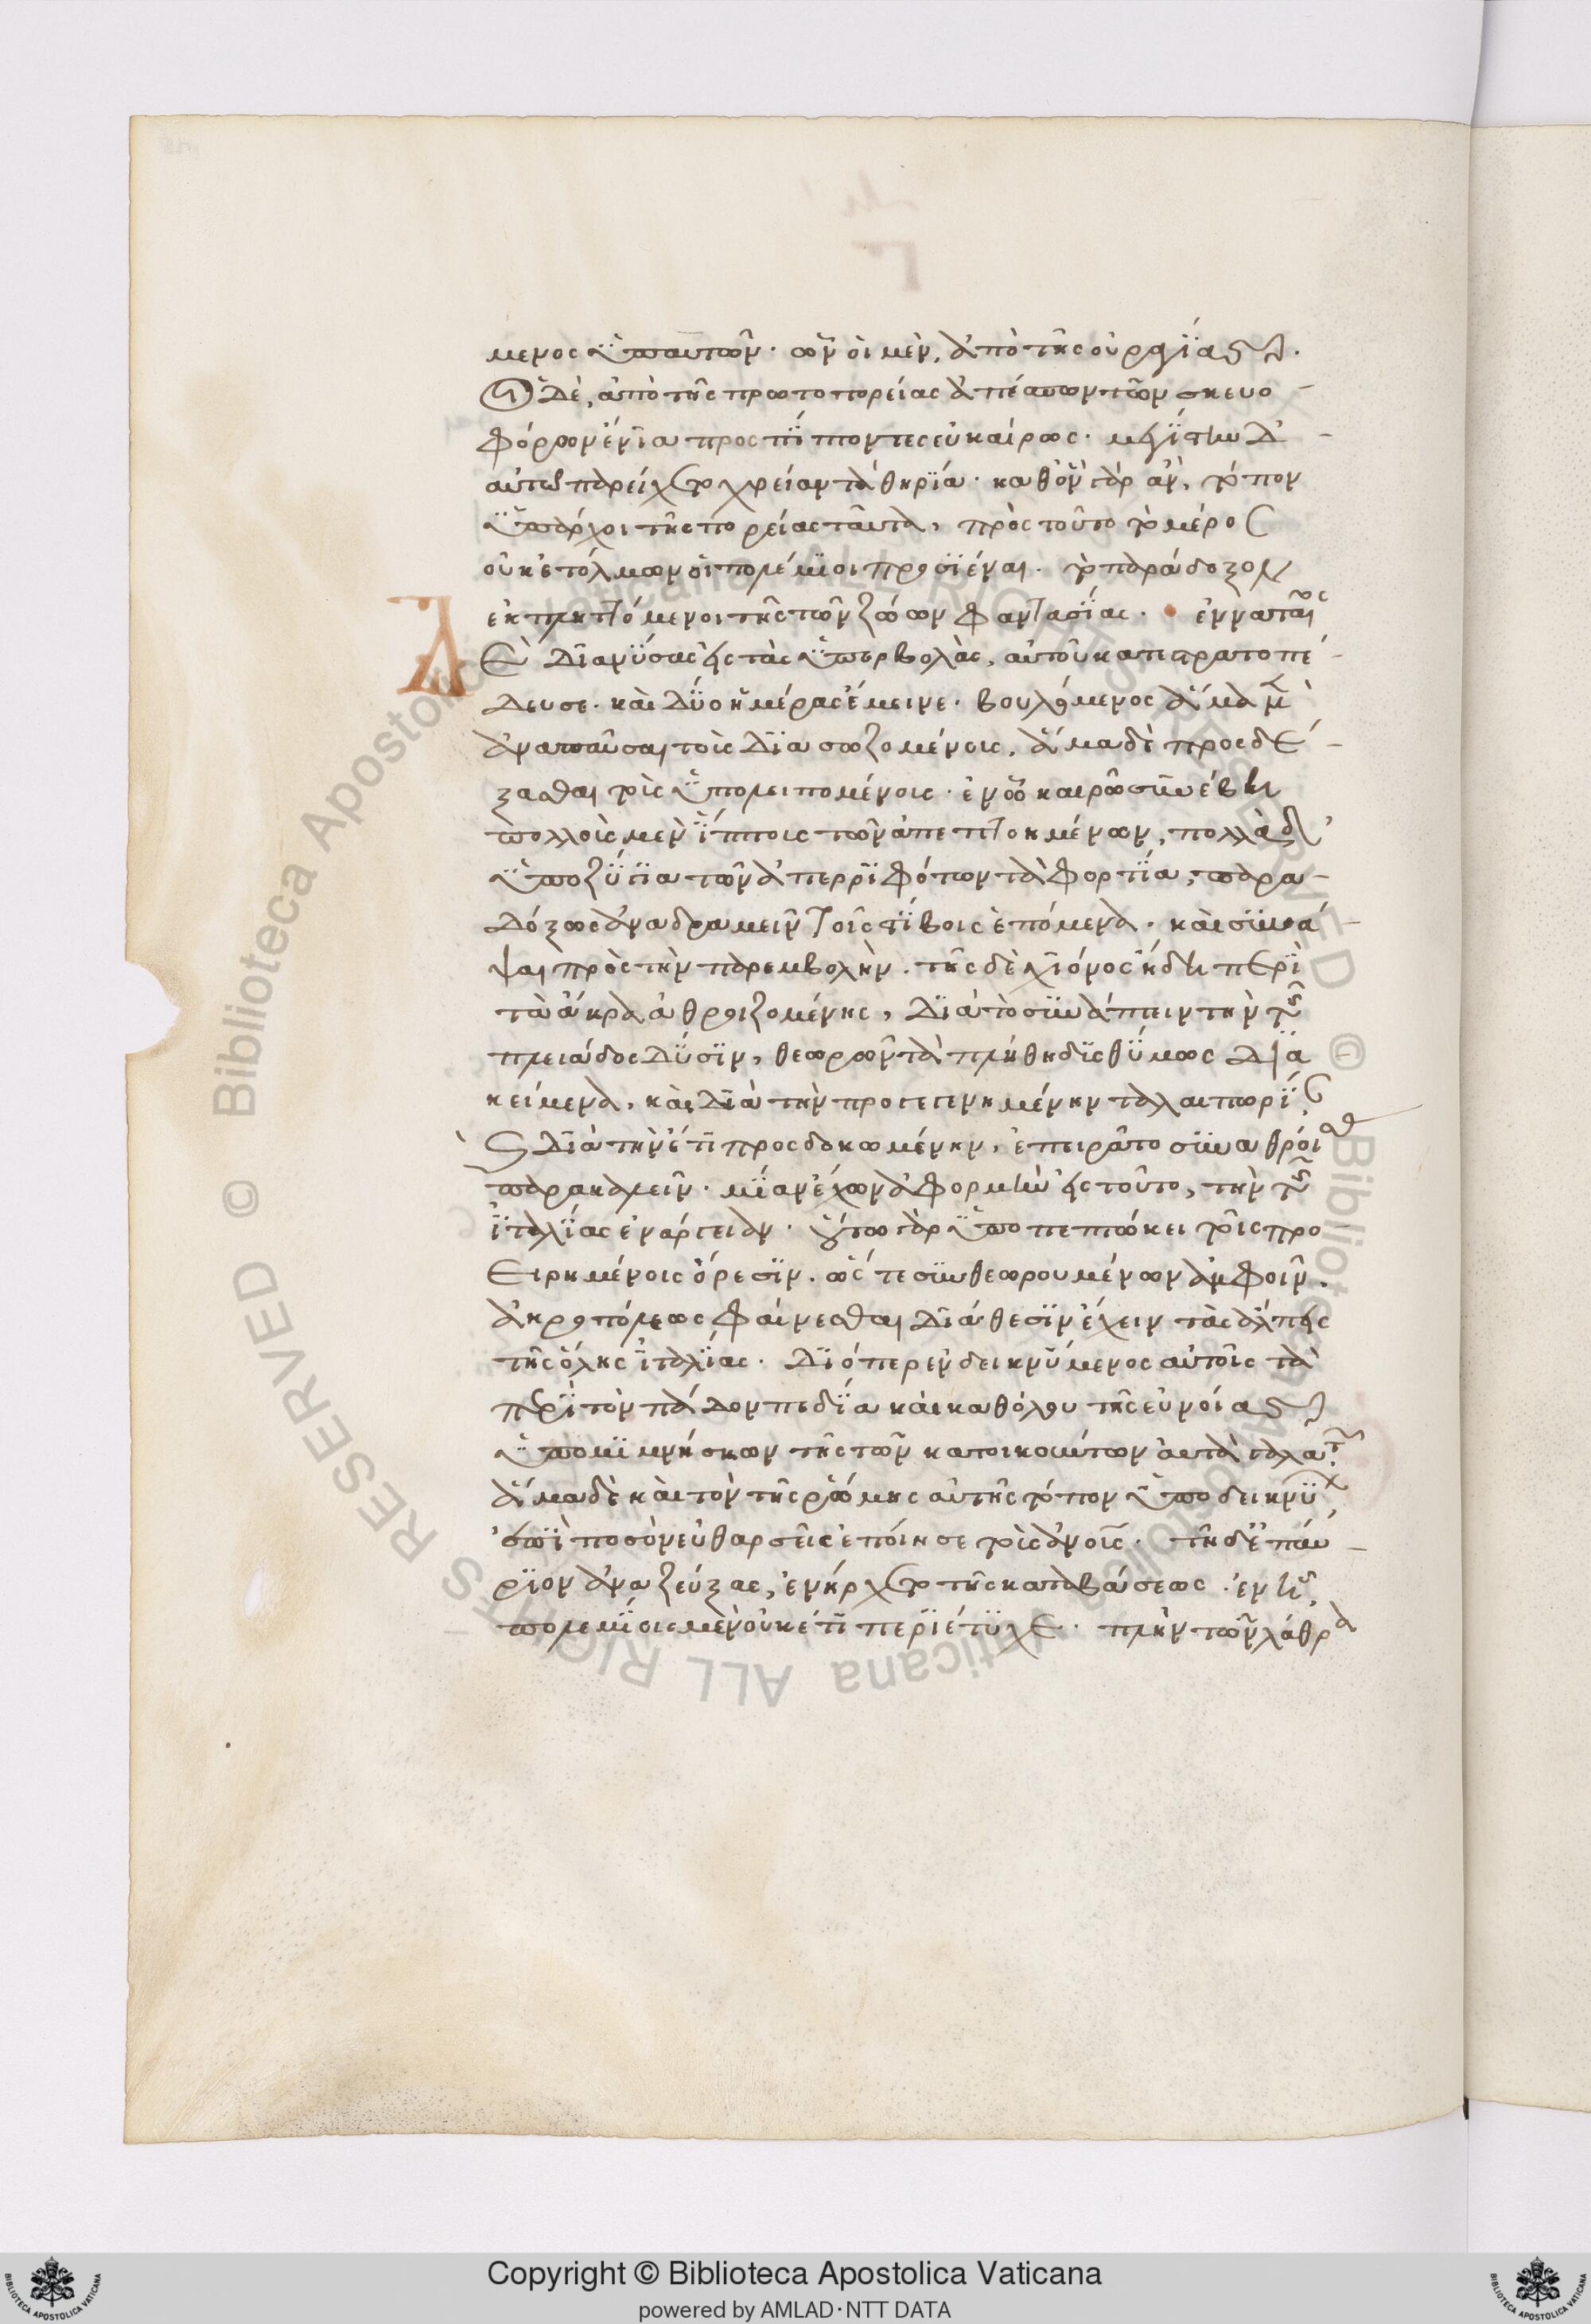 μενος ὑπ' αὐτῶν· ὧν οἱ μὲν, ἀπὸ τῆς οὐραγίας.
οἱ δὲ, ἀπὸ τῆς πρωτοπορείας ἀπέσπων τῶν σκευο
φόρων ἔνια προσπίπτοντες εὐκαίρως· μεγίστην δ'
αὐτῷ παρείχετο χρείαν τὰ θηρία· καθ' ὃν γὰρ ἂν τόπον
ὑπάρχοι τῆς πορείας ταῦτα, πρὸς τοῦτο τὸ μέρος
οὐκ ἐτόλμων οἱ πολέμιοι προσιέναι· τὸ παράδοξον
ἐκπληττόμενοι τῆς τῶν ζώων φαντασίας· ἐνναταῖος
δὲ διανύσας εἰς τὰς ὑπερβολὰς, αὐτοῦ κατεστρατοπέ
δευσε· καὶ δύο ἡμέρας ἔμεινε· βουλόμενος ἅμα μὲν
ἀναπαῦσαι τοῖς διασωζομένοις, ἅμα δὲ προσδέ
ξασθαι τοῖς ὑπολειπομένοις· ἐν ᾧ καιρῷ συνέβη
πολλοῖς μὲν ἵπποις τῶν ἀπεπτοημένων, πολλὰ δ'
ὑποζύγια τῶν ἀπερριφότων τὰ φορτία, παρα
δόξως ἀναδραμεῖν τοῖς στίβοις ἑπόμενα· καὶ συνά
ψαι πρὸς τὴν παρεμβολὴν· τῆς δὲ χιόνος ἤδη περὶ
τὰ ἄκρα ἀθροιζομένης, διὰ τὸ συνάπτειν τὴν τῆς
πλειάδος δύσιν, θεωρῶν τὰ πλήθη δισθύμως δια
κείμενα, καὶ διὰ τὴν προγεγενημένην ταλαιπωρίαν
καὶ διὰ τὴν ἔτι προσδοκωμένην, ἐπειρᾶτο συναθροίσας
παρακαλεῖν· μίαν ἔχων ἀφορμὴν εἰς τοῦτο, τὴν τῆς
ἰταλίας ἐνάργειαν· οὕτω γὰρ ὑποπεπτώκει τοῖς προ
ειρημένοις ὄρεσιν· ὥστε συνθεωρουμένων ἀμφοῖν.
ἀκροπόλεως φαίνεσθαι διάθεσιν ἔχειν τὰς ἄλπεις
τῆς ὅλης ἰταλίας· διόπερ ἐνδεικνύμενος αὐτοῖς τὰ
περὶ τὸν πάδον πεδία καὶ καθόλου τῆς εὐνοίας
ὑπομιμνήσκων τῆς τῶν κατοικούντων αὐτὰ γαλατῶν
ἅμα δὲ καὶ τὸν τῆς ῥώμης αὐτῆς τόπον ὑποδεικνύων
ἐπὶ ποσὸν εὐθαρσεῖς ἐποίησε τοὺς ἀνοὺς· τῇ δ' ἐπαύ
ριον ἀναζεύξας, ἐνήρχετο τῆς καταβάσεως· ἐν ᾗ
πολεμίοις μὲν οὐκέτι περιέτυχε· πλὴν τῶν λάθρα